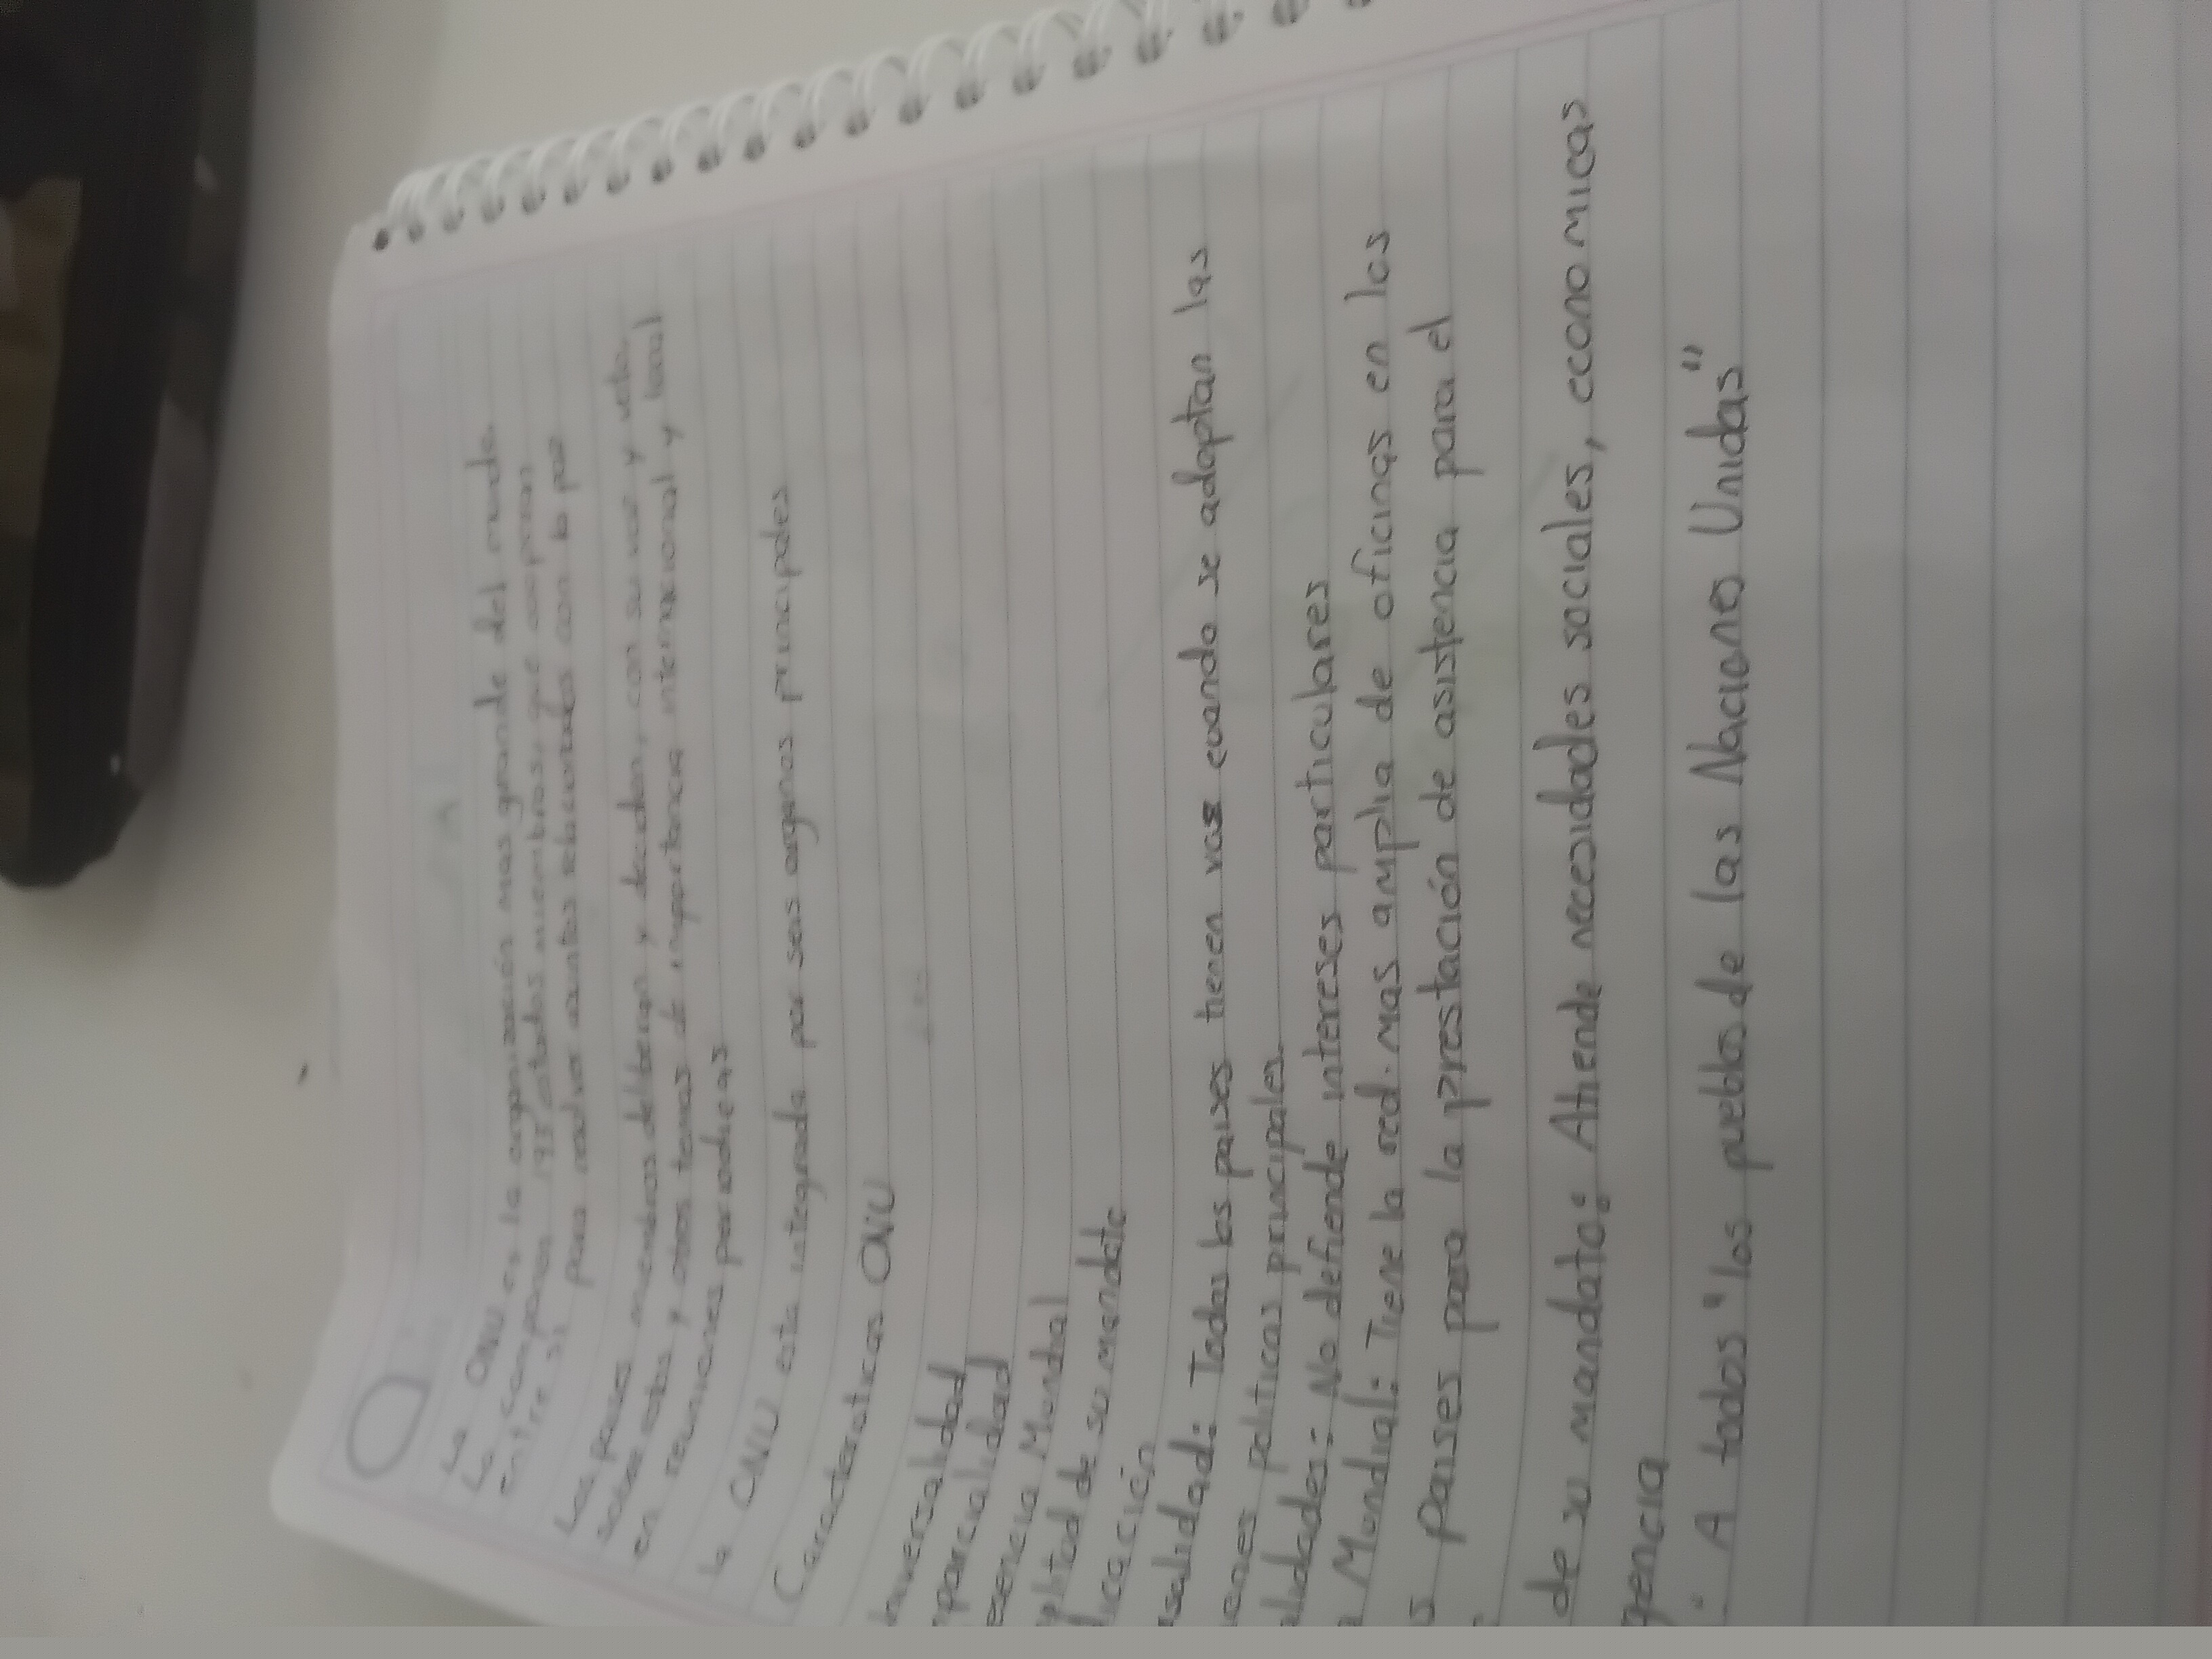 La ONU es la organización mas grande del mundo.
La componen 193 estados miembros, que cooperan
entre si para resolver asuntos relacionados con la paz
Los paises miembros deliberan y deciden, con su voz y voto,
sobre estos y otros temas de importancia internacional y local
en reuniones periodicas
la ONU esta integrada por seis organos principales
Caracteristicas ONU
niversalidad
mparcialidad
esencia Mundial
plitud de su mandato
dicación
rsalidad: Todos los paises tienen voz cuando se adoptan las
ones politicas principales.
alidades: No defiende intereses particulares
a Mundial: Tiene la red mas amplia de oficinas en los
s paises para la prestación de asistencia para el
de su mandato: Atiende necesidades sociales, economicas
gencia
" A todos "los pueblos de las Naciones Unidas"